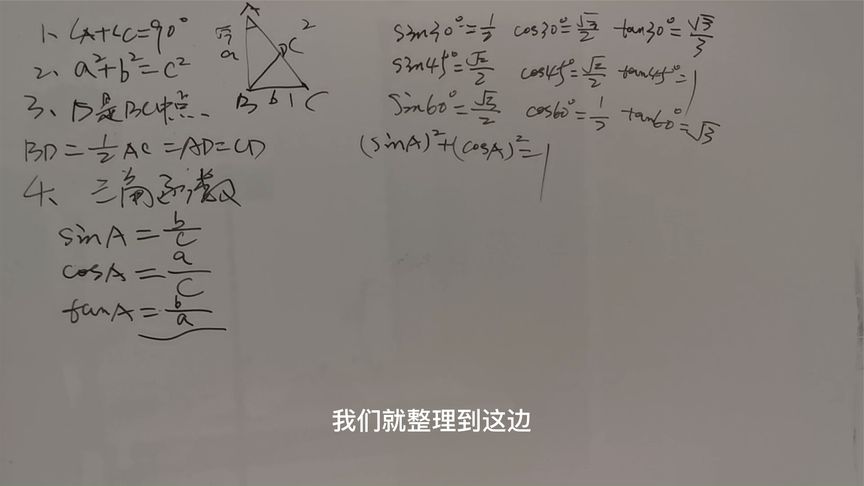 1、∠A+∠C=90°
2、a²+b²=c²
3、D是BC中点
BD=1/2AC=AD=CD
4、三角函数
sinA=b/c
cosA=a/c
tanA=b/a
A
√3
a
D
C
2
B
b
1
C
sin30°=1/2 cos30°=√3/2 tan30°=√3/3
sin45°=√2/2 cos45°=√2/2 tan45°=1
sin60°=√3/2 cos60°=1/2 tan60°=√3
(sinA)²+(cosA)²=1
我们就整理到这边